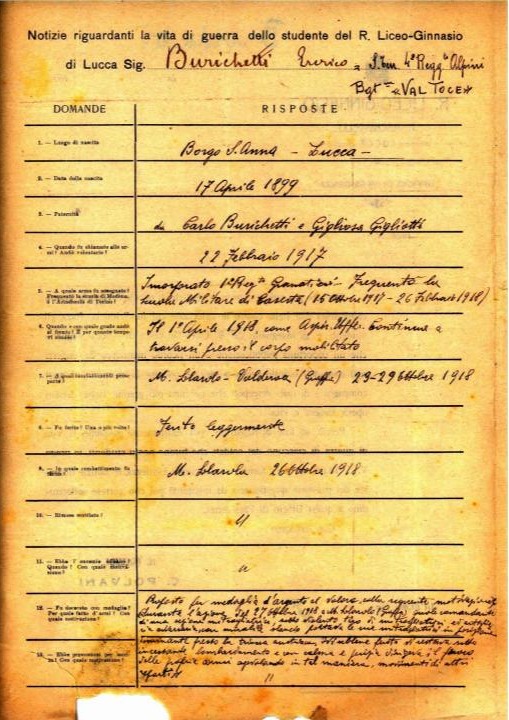 Notizie riguardanti la vita di guerra dello studente del R. Liceo-Ginnasio
di Lucca Sig. Burichetti Enrico - S.Ten. 4º Reggto Alpini
Bgt "VAL TOCE"
DOMANDE
RISPOSTE
1. — Luogo di nascita
Borgo S. Anna - Lucca -
2. — Data della nascita
17 Aprile 1899
3. — Paternità
da Carlo Burichetti e Gigliotti
4. — Quando fu chiamato alle armi? Andò volontario?
22 Febbraio 1917
5. — A quale arma fu assegnato?
Frequentò la scuola di Modena,
o l'Accademia di Torino?
Incorporato 1º Regto Granatieri - Frequentò la
Scuola Militare di Caserta (15 Ottobre 1917 - 26 Febbraio 1918)
6. — Quando e con quale grado andò
al fronte? E per quanto tempo vi rimase?
Il 1º Aprile 1918, come Aspir. Uffle. Continua a
trovarsi presso il corpo mobilitato
7. — A quali combattimenti prese
parte?
M. Solarolo - Valderoa (Grappa) 23-29 Ottobre 1918
8. — Fu ferito? Una o più volte?
Ferito leggermente
9. — In quale combattimento fu
ferito?
M. Solarolo 26 Ottobre 1918
10. — Rimase mutilato?
"
11. — Ebbe l'encomio solenne?
Quando? Con quale motivazione?
"
12. — Fu decorato con medaglia?
Per quale fatto d'armi? Con quale motivazione?
Proposto per medaglia d'argento al valore, colla seguente motivazione
Durante l'azione del 27 Ottobre 1918 a M. Solarolo (Grappa) quale comandante
di una sezione mitragliatrici, sotto violento tiro di
con
13. — Ebbe promozioni per meriti? Con quale motivazione?
Sebbene ferito restava sotto
incessante bombardamento e con valore e perizia dirigeva il fuoco
delle proprie armi agevolando in tal maniera, movimenti di altri
reparti
"
C. POLVANI